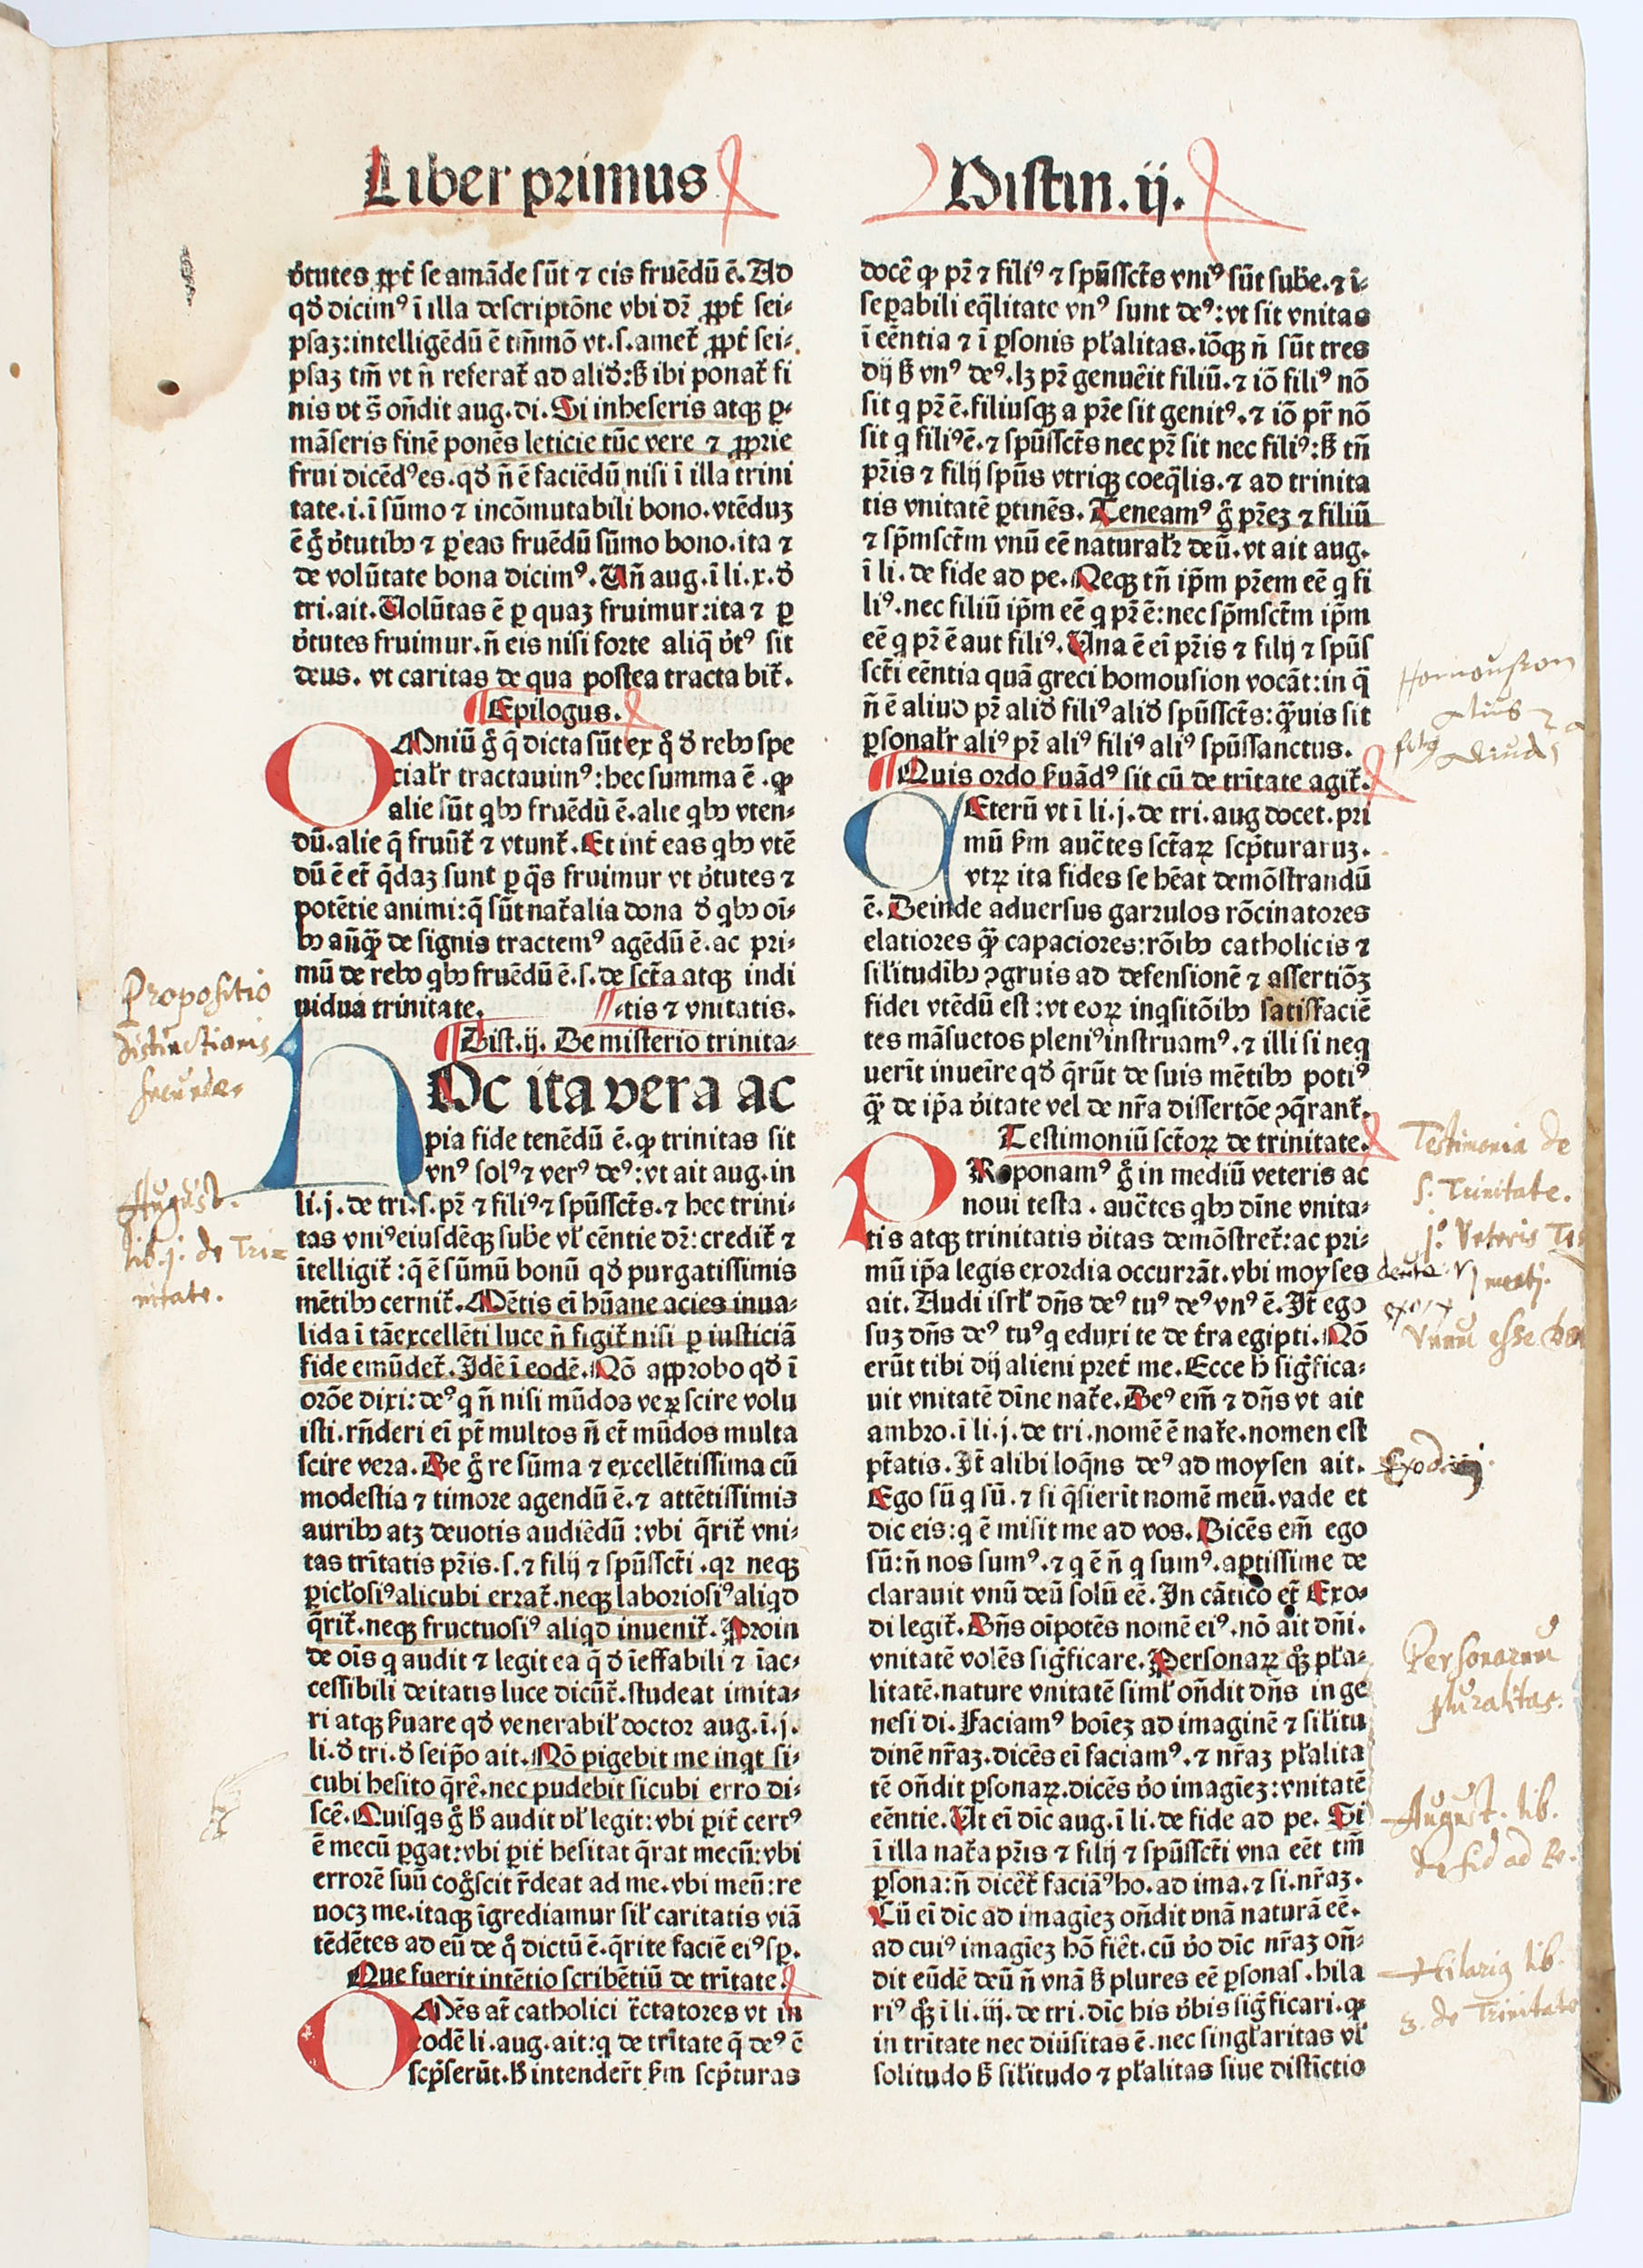 Liber primus
v̓tutes ꝓpt̃ se amãde sũt ⁊ eis fruẽdũ ẽ. Ad
qď dicimꝰ ĩ illa descriptõne vbi dr̃ ꝓpt̃ sei-
psaꝫ: intelligẽdũ ẽ tm̃mõ vt. s. amet̃ ꝓpt̃ sei-
psaꝫ tm̃ vt ñ referat̃ ad aliď: ß ibi ponat̃ fi
nis vt s̃ oñdit aug. di. Si inheseris atqꝫ ꝑ-
mãseris finẽ ponẽs leticie tũc vere ⁊ ꝓprie
frui dicẽdꝰ es. qď ñ ẽ faciẽdũ nisi ĩ illa trini
tate. i. ĩ sũmo ⁊ incõmutabili bono. vtẽduꝫ
ẽ g̊ v̓tutibꝫ ⁊ ꝑ eas fruẽdũ sũmo bono. ita ⁊
de volũtate bona dicimꝰ. Uñ aug. ĩ li. x. ď
tri. ait. Uolũtas ẽ ꝑ quaꝫ fruimur: ita ⁊ ꝑ
v̓tutes fruimur. ñ eis nisi forte aliq̃ v̓tꝰ sit
deus. vt caritas de qua postea tracta bit̃.
Epilogus.
OMniũ g̊ q̃ dicta sũt ex q̊ ď rebꝫ spe
cialr̃ tractauimꝰ: hec summa ẽ. ꝙ
alie sũt qbꝫ fruẽdũ ẽ. alie qbꝫ vten-
dũ. alie q̃ fruũt̃ ⁊ vtunt̃. Et int̃ eas qbꝫ vtẽ
dũ ẽ et̃ q̃daꝫ sunt ꝑ q̃s fruimur vt v̓tutes ⁊
potẽtie animi: q̃ sũt nat̃alia bona ď qbꝫ oĩ-
bꝫ añq̃ꝫ de signis tractemꝰ agẽdũ ẽ. ac pri-
mũ de rebꝫ qbꝫ fruẽdũ ẽ. s. de sct̃a atqꝫ indi
uidua trinitate. -tis ⁊ vnitatis.
Dist. ij. De misterio trinita-
HOc ita vera ac
pia fide tenẽdũ ẽ. ꝙ trinitas sit
vnꝰ solꝰ ⁊ verꝰ deꝰ: vt ait aug. in
li. j. de tri. s. pr̃ ⁊ filiꝰ ⁊ spũssct̃s. ⁊ hec trini-
tas vniꝰ eiusdẽqꝫ sub̃e vl̃ eẽntie dr̃: credit̃ ⁊
ĩtelligit̃: q̃ ẽ sũmũ bonũ qď purgatissimis
mẽtibꝫ cernit̃. Mẽtis eĩ hũane acies inua-
lida ĩ tã excellẽti luce ñ figit̃ nisi ꝑ iusticiã
fide emũdet̃. Idẽ ĩ eodẽ. Nõ approbo qď ĩ
orõe dixi: deꝰ q ñ nisi mũdos veꝝ scire volu
isti. rñderi eĩ pt̃ multos ñ et̃ mũdos multa
scire vera. De g̊ re sũma ⁊ excellẽtissima cũ
modestia ⁊ timore agendũ ẽ. ⁊ attẽtissimis
auribꝫ atꝫ deuotis audiẽdũ: vbi q̃rit̃ vni-
tas trĩtatis pr̃is. s. ⁊ filij ⁊ spũssct̃i. qꝛ neqꝫ
ꝑicl̃osiꝰ alicubi errat̃. neqꝫ laboriosiꝰ aliqd
q̃rit̃. neqꝫ fructuosiꝰ aliqd inuenit̃. Proin
de oĩs q audit ⁊ legit ea q̃ ď ĩeffabili ⁊ ĩac-
cessibili deitatis luce dicũt̃. studeat imita-
ri atqꝫ ßuare qď venerabil̃ doctor aug. ĩ. j.
li. ď tri. ď seip̃o ait. Nõ pigebit me inqt si-
cubi hesito q̃rẽ. nec pudebit sicubi erro di-
scẽ. Quisqs g̊ ɦ audit vl̃ legit: vbi ꝑit̃ certꝰ
ẽ mecũ ꝑgat: vbi ꝑit̃ hesitat q̃rat mecũ: vbi
errorẽ suũ cog̊scit r̃deat ad me. vbi meũ: re
uocꝫ me. itaqꝫ ĩgrediamur sil̃ caritatis viã
tẽdẽtes ad eũ de q̊ dictũ ẽ. q̃rite faciẽ eiꝰ sꝑ.
Que fuerit intẽtio scribẽtiũ de trĩtate.
OMẽs at̃ catholici t̃ctatores vt in
eodẽ li. aug. ait: q de trĩtate q̃ deꝰ ẽ
scp̃serũt. ɦ intender̃t ßm scp̃turas
Distin. ij.
docẽ ꝙ pr̃ ⁊ filiꝰ ⁊ spũssct̃s vniꝰ sũt sub̃e. ⁊ ĩ-
seꝑabili eq̃litate vnꝰ sunt deꝰ: vt sit vnitas
ĩ eẽntia ⁊ ĩ ꝑsonis pl̃alitas. iõqꝫ ñ sũt tres
dij ß vnꝰ deꝰ. lꝫ pr̃ genuẽit filiũ. ⁊ iõ filiꝰ nõ
sit q pr̃ ẽ. filiusqꝫ a pr̃e sit genitꝰ. ⁊ iõ pr̃ nõ
sit q filiꝰ ẽ. ⁊ spũssct̃s nec pr̃ sit nec filiꝰ: ß tñ
pr̃is ⁊ filij spũs vtriqꝫ coeq̃lis. ⁊ ad trinita
tis vnitatẽ ꝑtinẽs. Teneamꝰ g̊ pr̃eꝫ ⁊ filiũ
⁊ spm̃sct̃m vnũ eẽ naturalr̃ deũ. vt ait aug.
ĩ li. de fide ad pe. Neqꝫ tñ ip̃m pr̃em eẽ q fi
liꝰ. nec filiũ ip̃m eẽ q pr̃ ẽ: nec spm̃sct̃m ip̃m
eẽ q pr̃ ẽ aut filiꝰ. Una ẽ eĩ pr̃is ⁊ filij ⁊ spũs
sct̃i eẽntia quã greci homousion vocãt: in q̃
ñ ẽ aliud pr̃ aliď filiꝰ aliď spũssct̃s: q̃ꝫuis sit
ꝑsonalr̃ aliꝰ pr̃ aliꝰ filiꝰ aliꝰ spũssanctus.
Quis ordo ßuãdꝰ sit cũ de trĩtate agit̃.
CEterũ vt ĩ li. j. de tri. aug docet. pri
mũ ßm auct̃es sct̃aꝝ scp̃turaruꝫ.
vtꝝ ita fides se hẽat demõstrandũ
ẽ. Deinde aduersus garrulos rõcinatores
elatiores q̃ꝫ capaciores: rõibꝫ catholicis ⁊
silitudĩbꝫ ꝯgruis ad defensionẽ ⁊ assertiõꝫ
fidei vtẽdũ est: vt eoꝝ inqsitõibꝫ satisfaciẽ
tes mãsuetos pleniꝰ instruamꝰ. ⁊ illi si neq
uerĩt inueĩre qď q̃rũt de suis mẽtibꝫ potiꝰ
q̃ꝫ de ip̃a v̓itate vel de nr̃a dissertõe ꝯq̃rant̃.
Testimoniũ sct̃oꝝ de trinitate.
PRoponamꝰ g̊ in mediũ veteris ac
noui testa. auct̃es qbꝫ diĩne vnita-
tis atqꝫ trinitatis v̓itas demõstret̃: ac pri-
mũ ip̃a legis exordia occurrãt. vbi moyses
ait. Audi isrl̃ dñs deꝰ tuꝰ deꝰ vnꝰ ẽ. It̃ ego
suꝫ dñs deꝰ tuꝰ q eduxi te de t̃ra egipti. Nõ
erũt tibi dij alieni pret̃ me. Ecce ɦ sig̃fica-
uit vnitatẽ diĩne nat̃e. Deꝰ em̃ ⁊ dñs vt ait
ambro. ĩ li. j. de tri. nomẽ ẽ nat̃e. nomen est
pt̃atis. It̃ alibi loq̃ns deꝰ ad moysen ait.
Ego sũ q sũ. ⁊ si q̃sierĩt nomẽ meũ. vade et
dic eis: q ẽ misit me ad vos. Dicẽs em̃ ego
sũ: ñ nos sumꝰ. ⁊ q ẽ ñ q sumꝰ. aptissime de
clarauit vnũ deũ solũ eẽ. In cãtico et̃ Exo-
di legit̃. Dñs oĩpotẽs nomẽ eiꝰ. nõ ait dñi.
vnitatẽ volẽs sig̃ficare. Personaꝝ qꝫ pl̃a-
litatẽ. nature vnitatẽ siml̃ oñdit dñs in ge
nesi di. Faciamꝰ hoĩeꝫ ad imaginẽ ⁊ silitu
dinẽ nr̃aꝫ. dicẽs eĩ faciamꝰ. ⁊ nr̃aꝫ pl̃alita
tẽ oñdit ꝑsonaꝝ. dicẽs v̓o imagĩeꝫ: vnitatẽ
eẽntie. Ut eĩ dic̃ aug. ĩ li. de fide ad pe. Si
ĩ illa nat̃a pr̃is ⁊ filij ⁊ spũssct̃i vna eẽt tm̃
ꝑsona: ñ dicẽt̃ faciãꝰ ho. ad ima. ⁊ si. nr̃aꝫ.
Cũ eĩ dic ad imagĩeꝫ oñdit vnã naturã eẽ.
ad cuiꝰ imagĩeꝫ hõ fiẽt. cũ v̓o dic̃ nr̃aꝫ oñ-
dit eũdẽ deũ ñ vnã ß plures eẽ ꝑsonas. hila
riꝰ qꝫ ĩ li. iij. de tri. dic̃ his v̓bis sig̃ficari. ꝙ
in trĩtate nec diũsitas ẽ. nec singl̃aritas vl̃
solitudo ß silitudo ⁊ pl̃alitas siue distĩctio
Propositio
distinctionis
secundae
August.
lib. j. de Tri=
nitate.
Homousion
alius
Aliud
Testimonia de
s. Trinitate.
j.° Veteris
Unum esse
Exod. iij
Personarum
pluralitas.
August. lib.
de fid ad Pe.
Hilariꝰ lib.
3. de Trinitate